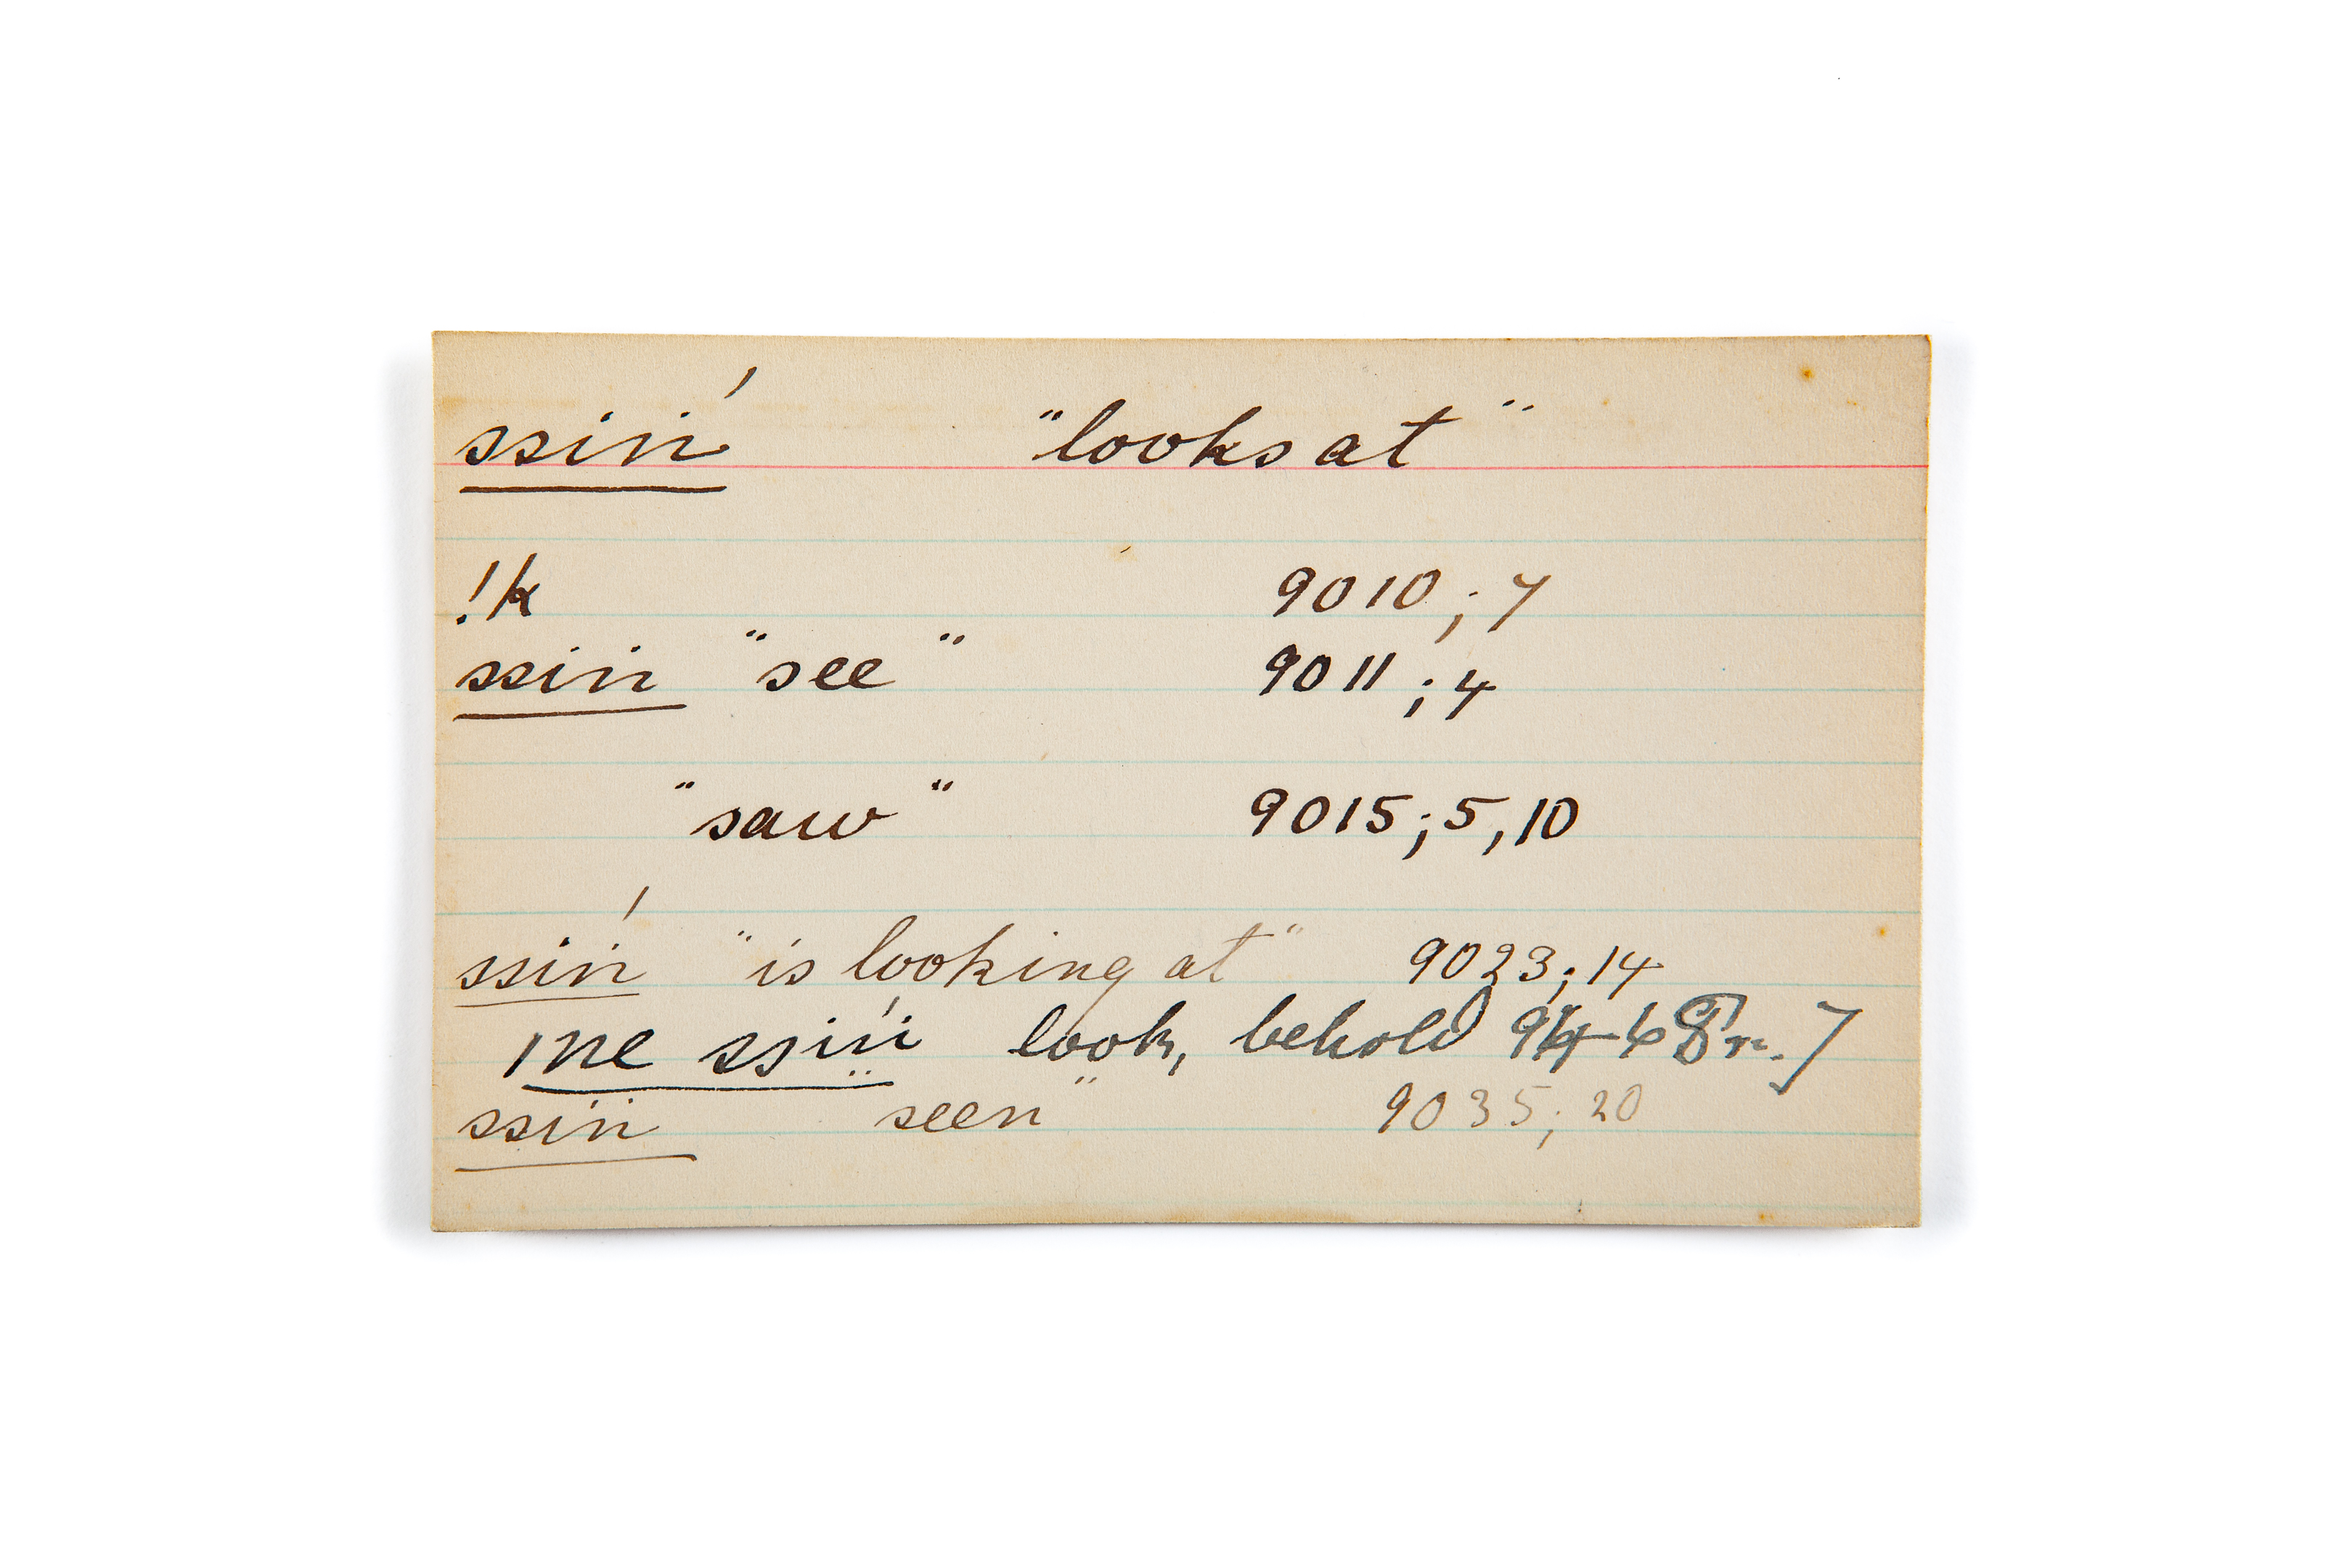 ssin̍́ "looks at"
!k 9010; 7
ssin̍ "see" 9011; 4
"saw" 9015; 5, 10
ssin̍́ "is looking at" 9023; 14
ıne ssin̍́ look, behold
ssin̍ "seen" 9035; 20